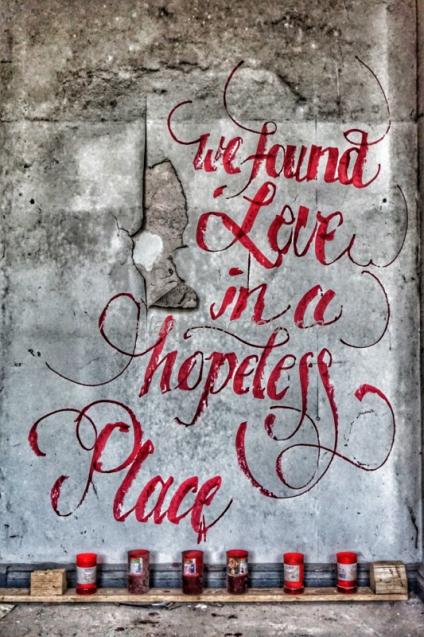 we found
Love
in a
hopeless
Place